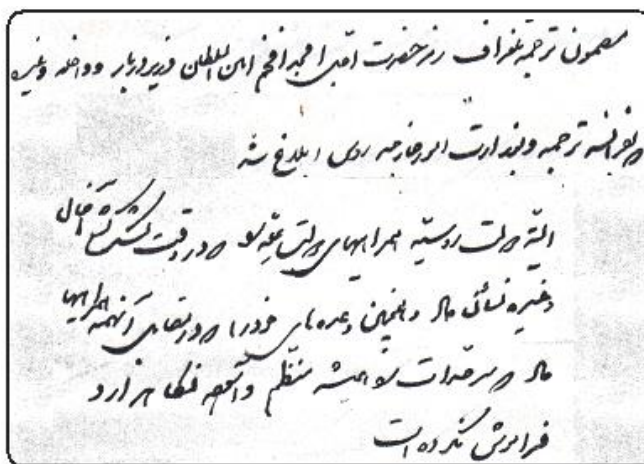 مضمون ترجمه تلگراف رمز حضرت امجد افخم امین السلطان وزیر دربار و داخله و غیره
بفرانسه ترجمه و بوزارت امور خارجه روس ابلاغ شد
البته دولت روسیه همراهیهای دولت علیه در وقت آخال
ذخیره ما و همچنین وعده های خود را در مقابل آنهمه همراهیها
ما در سرحدات همیشه منظم و نگاه دارد
فراموش نکرده است